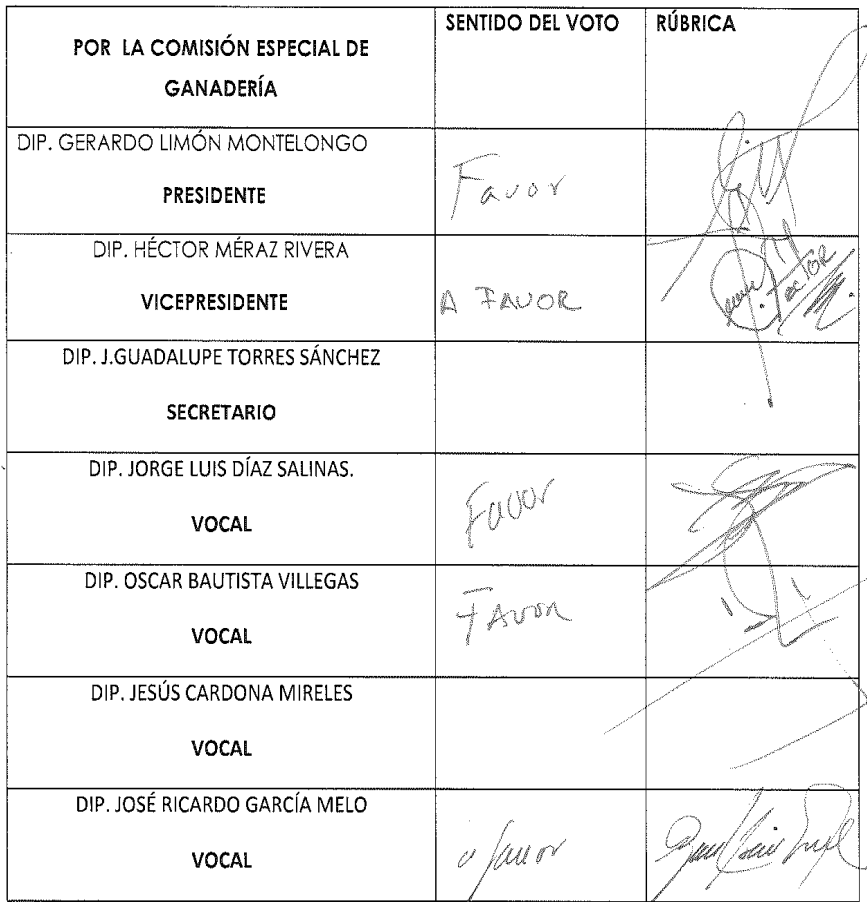 POR LA COMISIÓN ESPECIAL DE
GANADERÍA
SENTIDO DEL VOTO
RÚBRICA
DIP. GERARDO LIMÓN MONTELONGO
PRESIDENTE
Favor
DIP. HÉCTOR MÉRAZ RIVERA
VICEPRESIDENTE
A FAVOR
DIP. J.GUADALUPE TORRES SÁNCHEZ
SECRETARIO
DIP. JORGE LUIS DÍAZ SALINAS.
VOCAL
Favor
DIP. OSCAR BAUTISTA VILLEGAS
VOCAL
FAVOR
DIP. JESÚS CARDONA MIRELES
VOCAL
DIP. JOSÉ RICARDO GARCÍA MELO
VOCAL
a favor